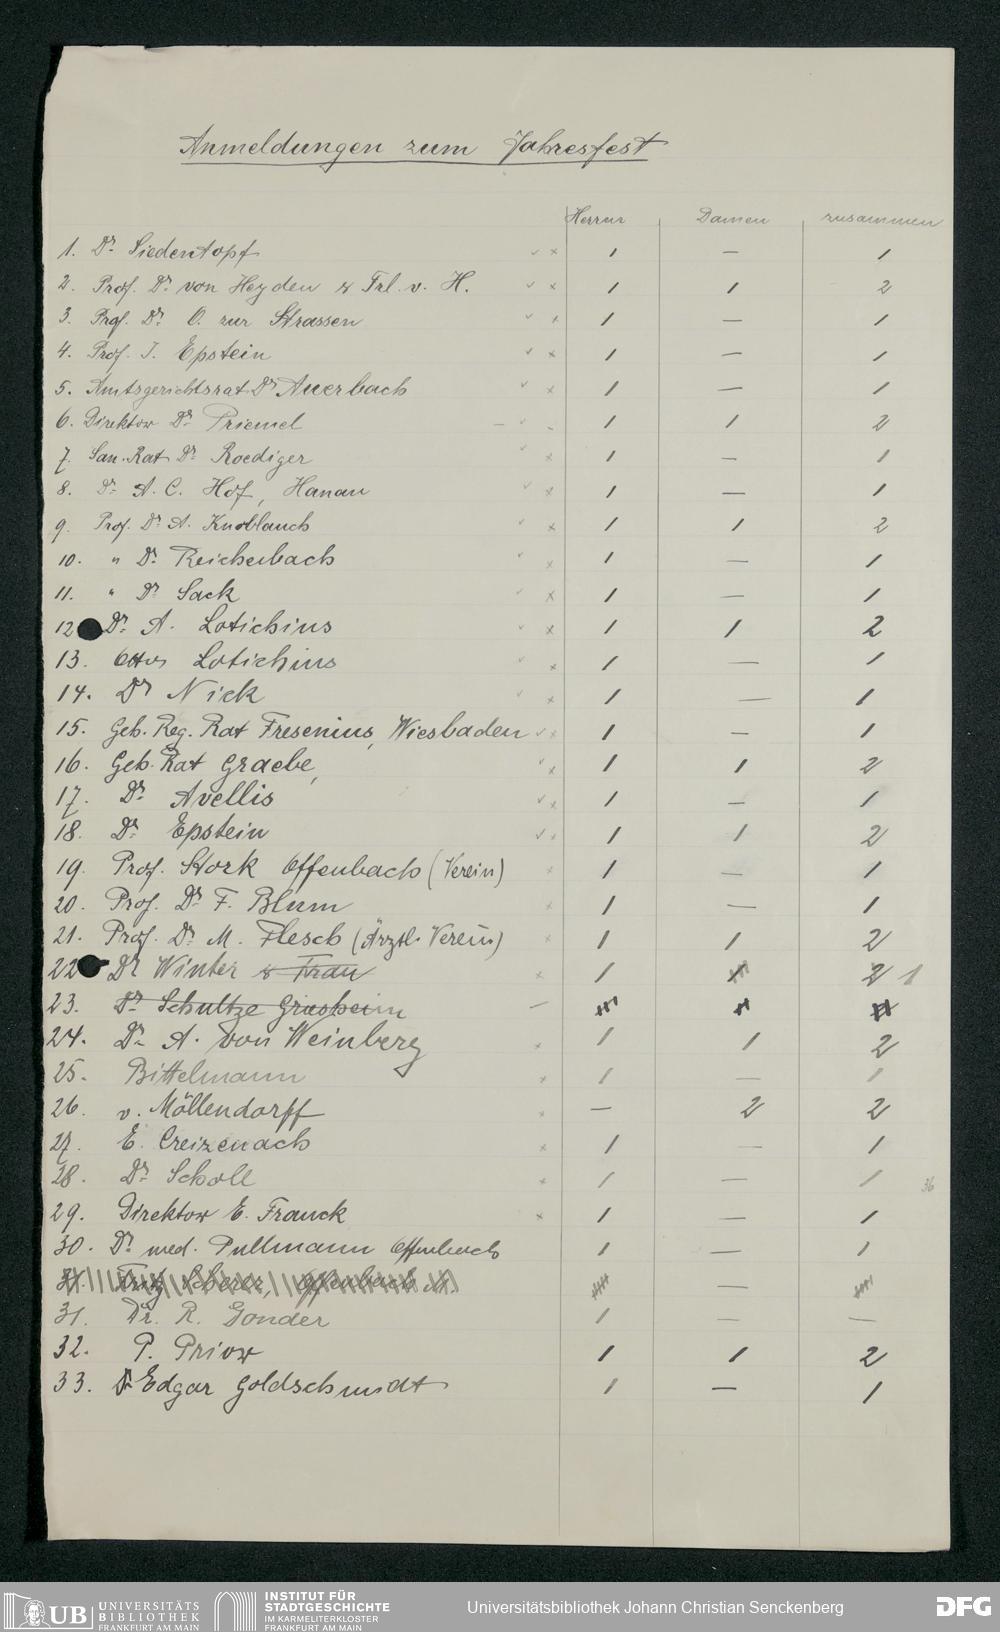 Anmeldungen zum Jahresfest
Herren Damen zusammen
1. Dr. Siedentopf 1 — 1
2. Prof. Dr. von Heyden & Frl. v. H. 1 1 2
3. Prof. Dr. O. zur Strassen 1 — 1
4. Prof. J. Epstein 1 — 1
5. Amtsgerichtsrat Dr Auerbach 1 — 1
6. Direktor Dr. Priemel 1 1 2
7. San.-Rat Dr. Roediger 1 — 1
8. Dr. A. C. Hof, Hanau 1 — 1
9. Prof. Dr. A. Knoblauch 1 1 2
10. " Dr. Reichenbach 1 — 1
11. " Dr. Sack 1 — 1
12 Dr. A. Lotichius 1 1 2
13. Otto Lotichius 1 — 1
14. Dr Nick 1 — 1
15. Geh. Reg. Rat Fresenius, Wiesbaden 1 — 1
16. Geh. Rat Graebe, 1 1 2
17. Dr. Avellis 1 — 1
18. Dr. Epstein 1 1 2
19. Prof. Stork Offenbach (Verein) 1 — 1
20. Prof. Dr. F. Blum 1 — 1
21. Prof. Dr. M. Flesch (Ärztl. Verein) 1 1 2
22 Dr Winter & Frau 1 2 1
23. Dr. Schultze Griesheim
24. Dr. A. von Weinberg 1 1 2
25. Bittelmann 1 — 1
26. v. Möllendorff — 2 2
27. E. Creizenach 1 — 1
28. Dr. Scholl 1 — 1 36
29. Direktor E. Franck 1 — 1
30. Dr. med. Pullmann Offenbach 1 — 1
31. Fritz Scherer, Offenbach —
31. Dr. R. Gonder 1 — —
32. P. Prior 1 1 2
33. Dr Edgar Goldschmidt 1 — 1
UB UNIVERSITÄTS
BIBLIOTHEK
FRANKFURT AM MAIN
INSTITUT FÜR
STADTGESCHICHTE
IM KARMELITERKLOSTER
FRANKFURT AM MAIN
Universitätsbibliothek Johann Christian Senckenberg
DFG